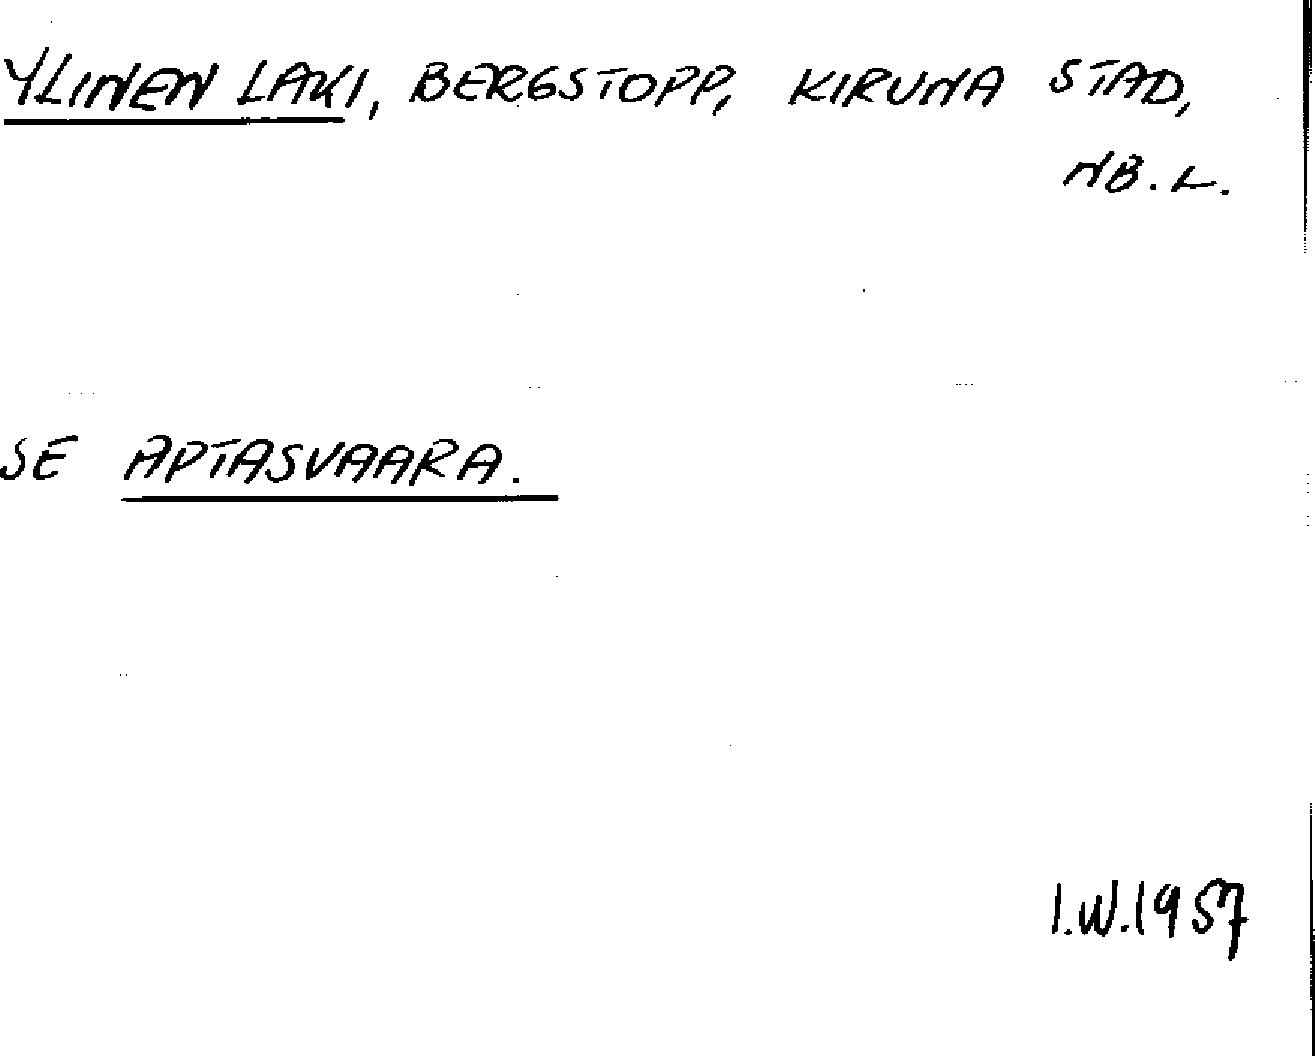 YLINEN LAKI, BERGSTOPP, KIRUNA STAD,
NB.L.
SE APTASVAARA.
I.W.1957